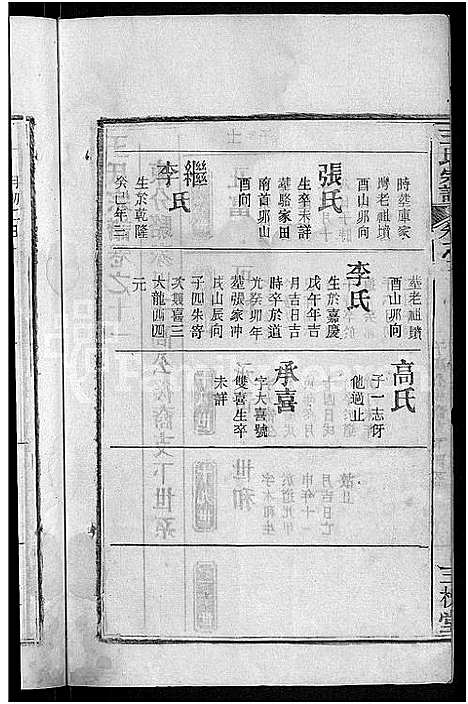 王氏宗譜
時葬庫家
灣老祖墳
酉山卯向
張氏
生卒未詳
葬駱家田
南首卯山
酉向
繼
李氏
生於乾隆
癸巳年三
葬老祖墳
酉山卯向
李氏
生於嘉慶
戊午年吉
月吉日吉
時卒於道
光癸卯年
葬張家冲
戌山辰向
子四朱寄
次雙喜三
大龍四四
元
高氏
子一志伢
他過止
承喜
字大喜號
雙喜生卒
未詳
三槐堂